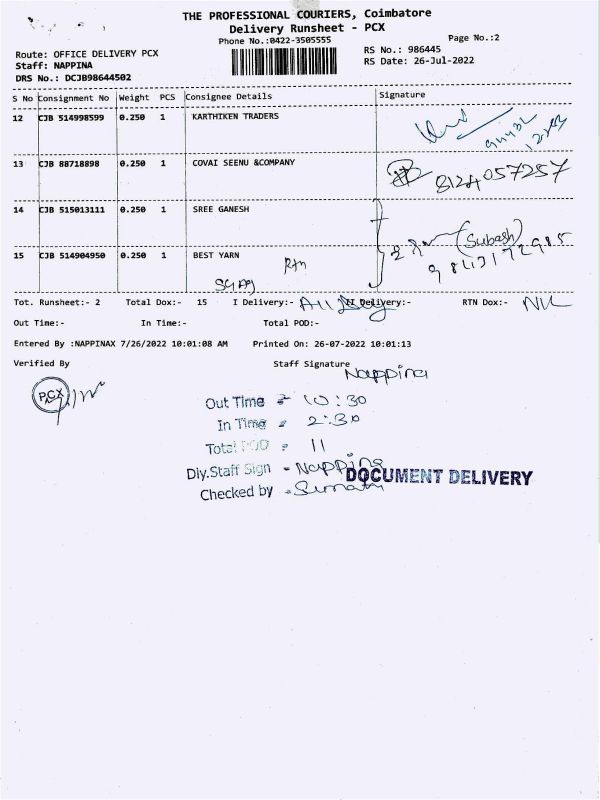 THE PROFESSIONAL COURIERS, Coimbatore
Delivery Runsheet - PCX
Phone No.:0422-3505555
Page No.:2
Route: OFFICE DELIVERY PCX
RS No.: 986445
Staff: NAPPINA
RS Date: 26-Jul-2022
DRS No.: DCJB98644502
S No Consignment No Weight PCS Consignee Details Signature
12 CJB 514998599 0.250 1 KARTHIKEN TRADERS
13 CJB 88718898 0.250 1 COVAI SEENU &COMPANY
8124057257
14 CJB 515013111 0.250 1 SREE GANESH
(Subash)
15 CJB 514904950 0.250 1 BEST YARN
Rtn
Tot. Runsheet:- 2 Total Dox:- 15 I Delivery:- All Dey II Delivery:- RTN Dox:- Nil
Out Time:- In Time:- Total POD:-
Entered By :NAPPINAX 7/26/2022 10:01:08 AM Printed On: 26-07-2022 10:01:13
Verified By Staff Signature
Nappina
PCX
Out Time - 10:30
In Time - 2:30
Total POD - 11
Dly.Staff Sign - Nappina
DOCUMENT DELIVERY
Checked by - Sumathi